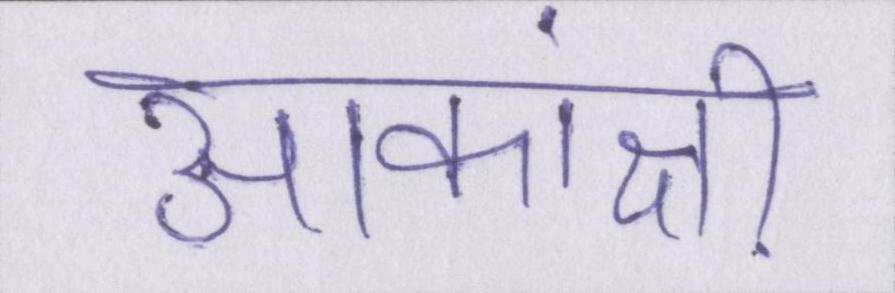 आकांक्षी